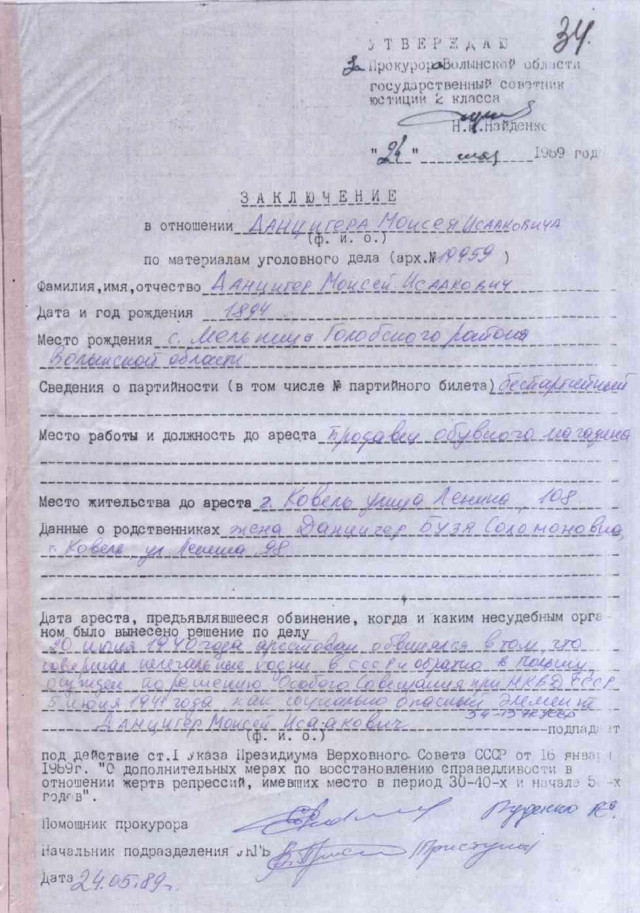 34.
УТВЕРЖДАЮ
Прокурора Волынской области
государственный советник
юстиции 2 класса
Н.Найденко
"24" мая 1989 год
ЗАКЛЮЧЕНИЕ
в отношении Данцигера Моисея Исааковича
(ф. и. о.)
по материалам уголовного дела (арх.№19959)
Фамилия,имя,отчество Данцигер Моисей Исаакович
Дата и год рождения 1894
Место рождения с. Мельница Голобского района
Волынской области
Сведения о партийности (в том числе № партийного билета) беспартийный
Место работы и должность до ареста Продавец обувного магазина
Место жительства до ареста г. Ковель улица Ленина, 108
Данные о родственниках жена Данцигер Бузя Соломоновна,
г. Ковель ул Ленина 98
Дата ареста, предъявлявшееся обвинение, когда и каким несудебным орга-
ном было вынесено решение по делу
20 июня 1940 года арестован, обвинялся в том, что
совершал нелегальные ходки в СССР и обратно в Польшу,
осужден по решению "Особого Совещания при НКВД СССР
5 июня 1941 года, как социально опасный элемент на
Данцигер Моисей Исаакович подпадает
(ф. и. о.)
под действие ст.I Указа Президиума Верховного Совета СССР от 16 января
1989г. "О дополнительных мерах по восстановлению справедливости в
отношении жертв репрессий, имевших место в период 30-40-х и начале 50-х
годов".
Помощник прокурора Руденко
Начальник подразделения
Дата 24.05.89г.